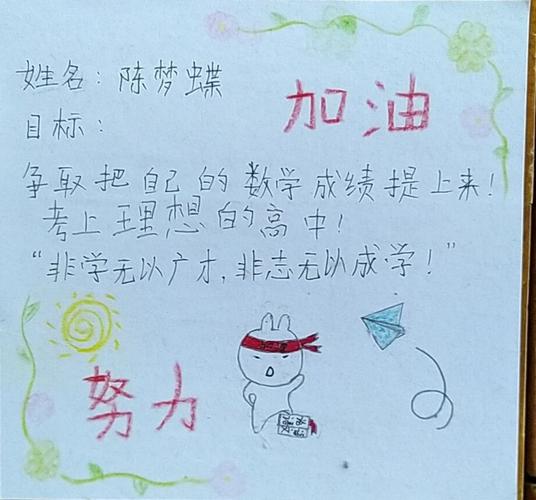 姓名：陈梦蝶
加油
目标：
争取把自己的数学成绩提上来！
考上理想的高中！
“非学无以广才，非志无以成学！”
努力